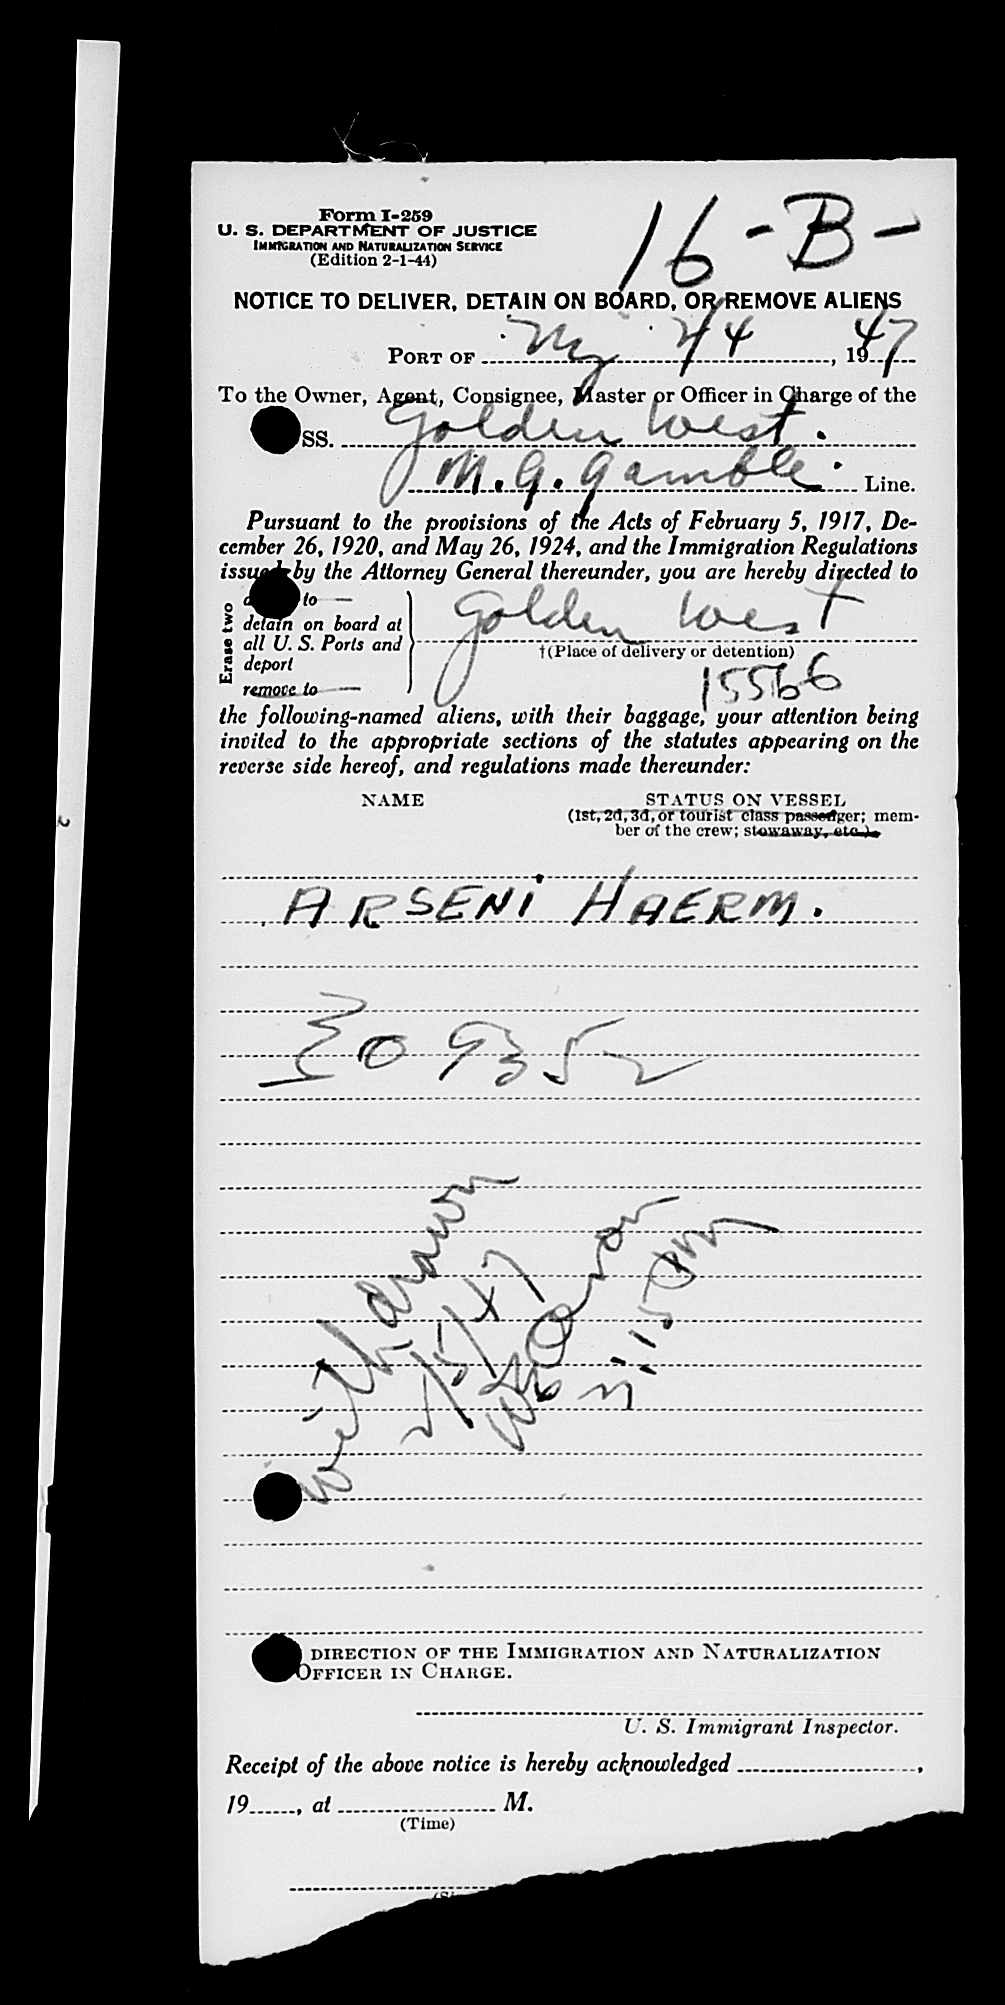 Form I-259
U. S. DEPARTMENT OF JUSTICE
IMMIGRATION AND NATURALIZATION SERVICE
(Edition 2-1-44)
16-B-
NOTICE TO DELIVER, DETAIN ON BOARD, OR REMOVE ALIENS
PORT OF Ny 2/4, 1947
To the Owner, Agent, Consignee, Master or Officer in Charge of the
SS. Golden West.
M. G. Gamble. Line.
Pursuant to the provisions of the Acts of February 5, 1917, De-
cember 26, 1920, and May 26, 1924, and the Immigration Regulations
issued by the Attorney General thereunder, you are hereby directed to
Erase two
to
detain on board at
all U. S. Ports and
deport
remove to
Golden West
†(Place of delivery or detention)
15566
the following-named aliens, with their baggage, your attention being
invited to the appropriate sections of the statutes appearing on the
reverse side hereof, and regulations made thereunder:
NAME
STATUS ON VESSEL
(1st, 2d, 3d, or tourist class passenger; mem-
ber of the crew; stowaway, etc.)
ARSENI HAERM.
30 9352
withdrawn
2/5/47
3:15 PM
DIRECTION OF THE IMMIGRATION AND NATURALIZATION
OFFICER IN CHARGE.
U. S. Immigrant Inspector.
Receipt of the above notice is hereby acknowledged ,
19 , at M.
(Time)